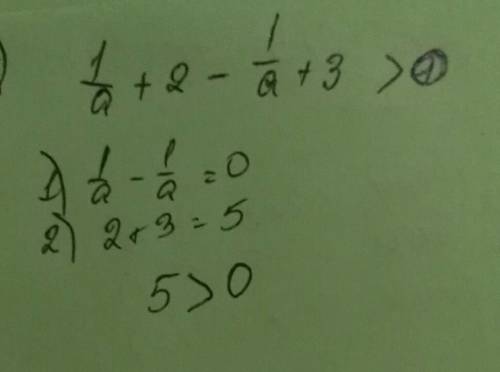 ) 1/a + 2 - 1/a + 3 >
1) 1/a - 1/a = 0
2) 2 + 3 = 5
5 > 0